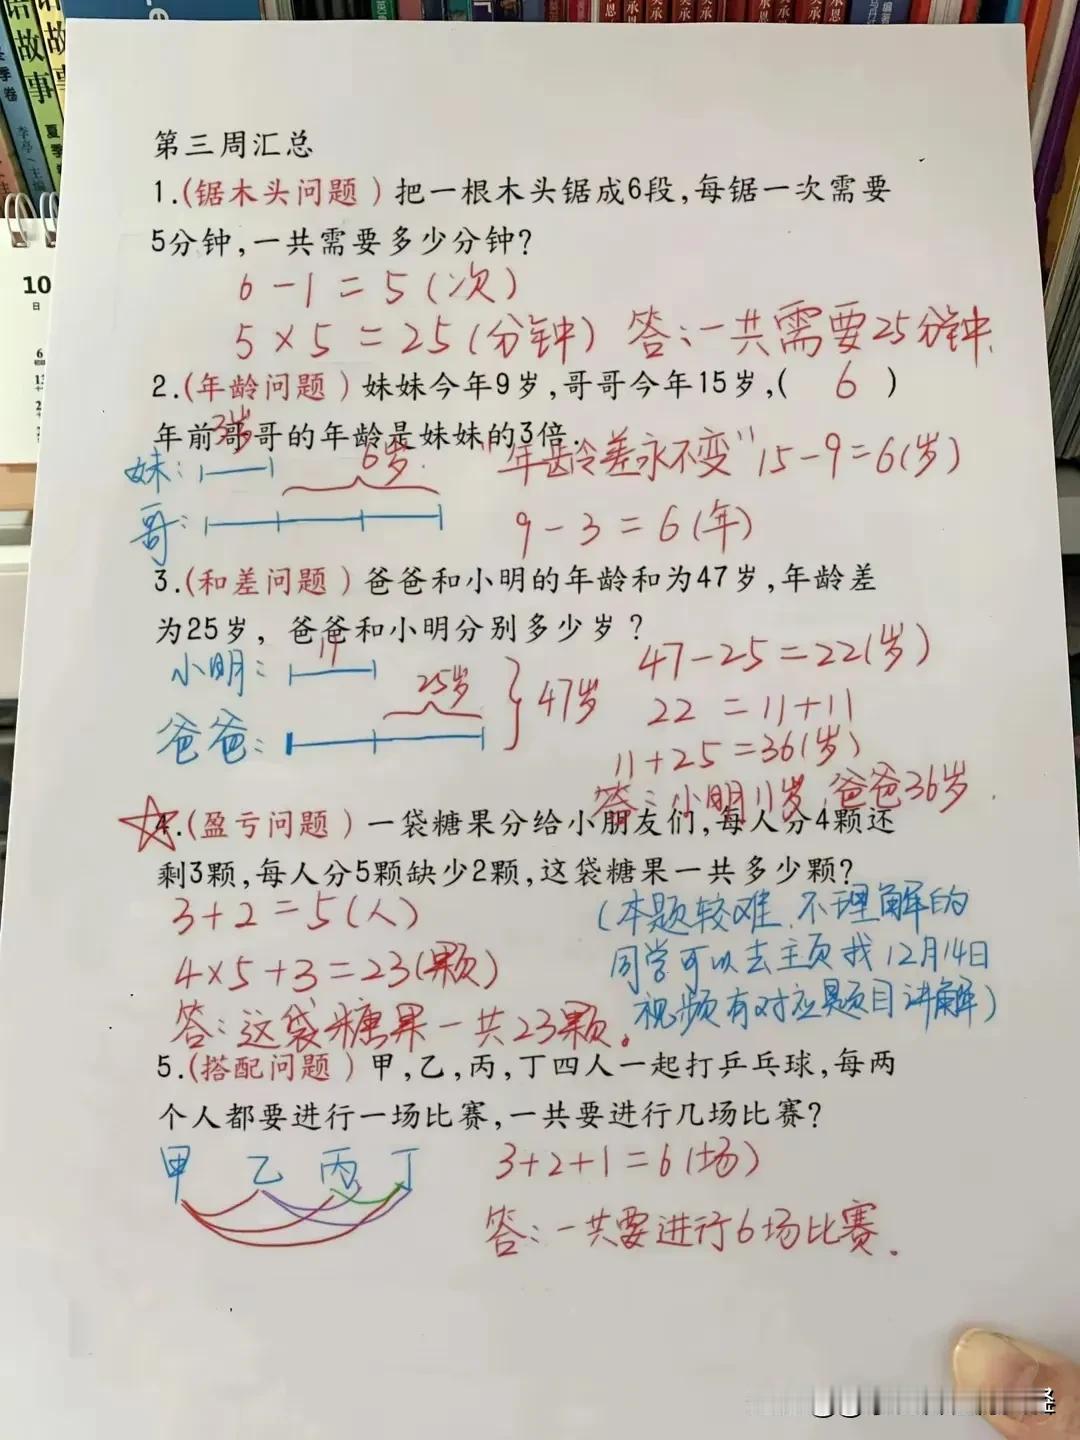 故事
故事
冬季卷
夏季
李亭
主编
10
日
6
第三周汇总
1.(锯木头问题)把一根木头锯成6段,每锯一次需要
5分钟,一共需要多少分钟?
6-1=5(次)
5×5=25(分钟) 答:一共需要25分钟.
2.(年龄问题)妹妹今年9岁,哥哥今年15岁,( 6 )
年前哥哥的年龄是妹妹的3倍.
3岁
妹: 6岁. "年龄差永不变" 15-9=6(岁)
哥: 9-3=6(年)
3.(和差问题)爸爸和小明的年龄和为47岁,年龄差
为25岁,爸爸和小明分别多少岁?
小明: 47-25=22(岁)
25岁 47岁 22=11+11
爸爸: 11+25=36(岁)
答:小明11岁,爸爸36岁.
4.(盈亏问题)一袋糖果分给小朋友们,每人分4颗还
剩3颗,每人分5颗缺少2颗,这袋糖果一共多少颗?
3+2=5(人) (本题较难,不理解的
4×5+3=23(颗) 同学可以去主页找12月14日
答:这袋糖果一共23颗。 视频有对应题目讲解)
5.(搭配问题)甲,乙,丙,丁四人一起打乒乓球,每两
个人都要进行一场比赛,一共要进行几场比赛?
甲 乙 丙 丁 3+2+1=6(场)
答:一共要进行6场比赛.